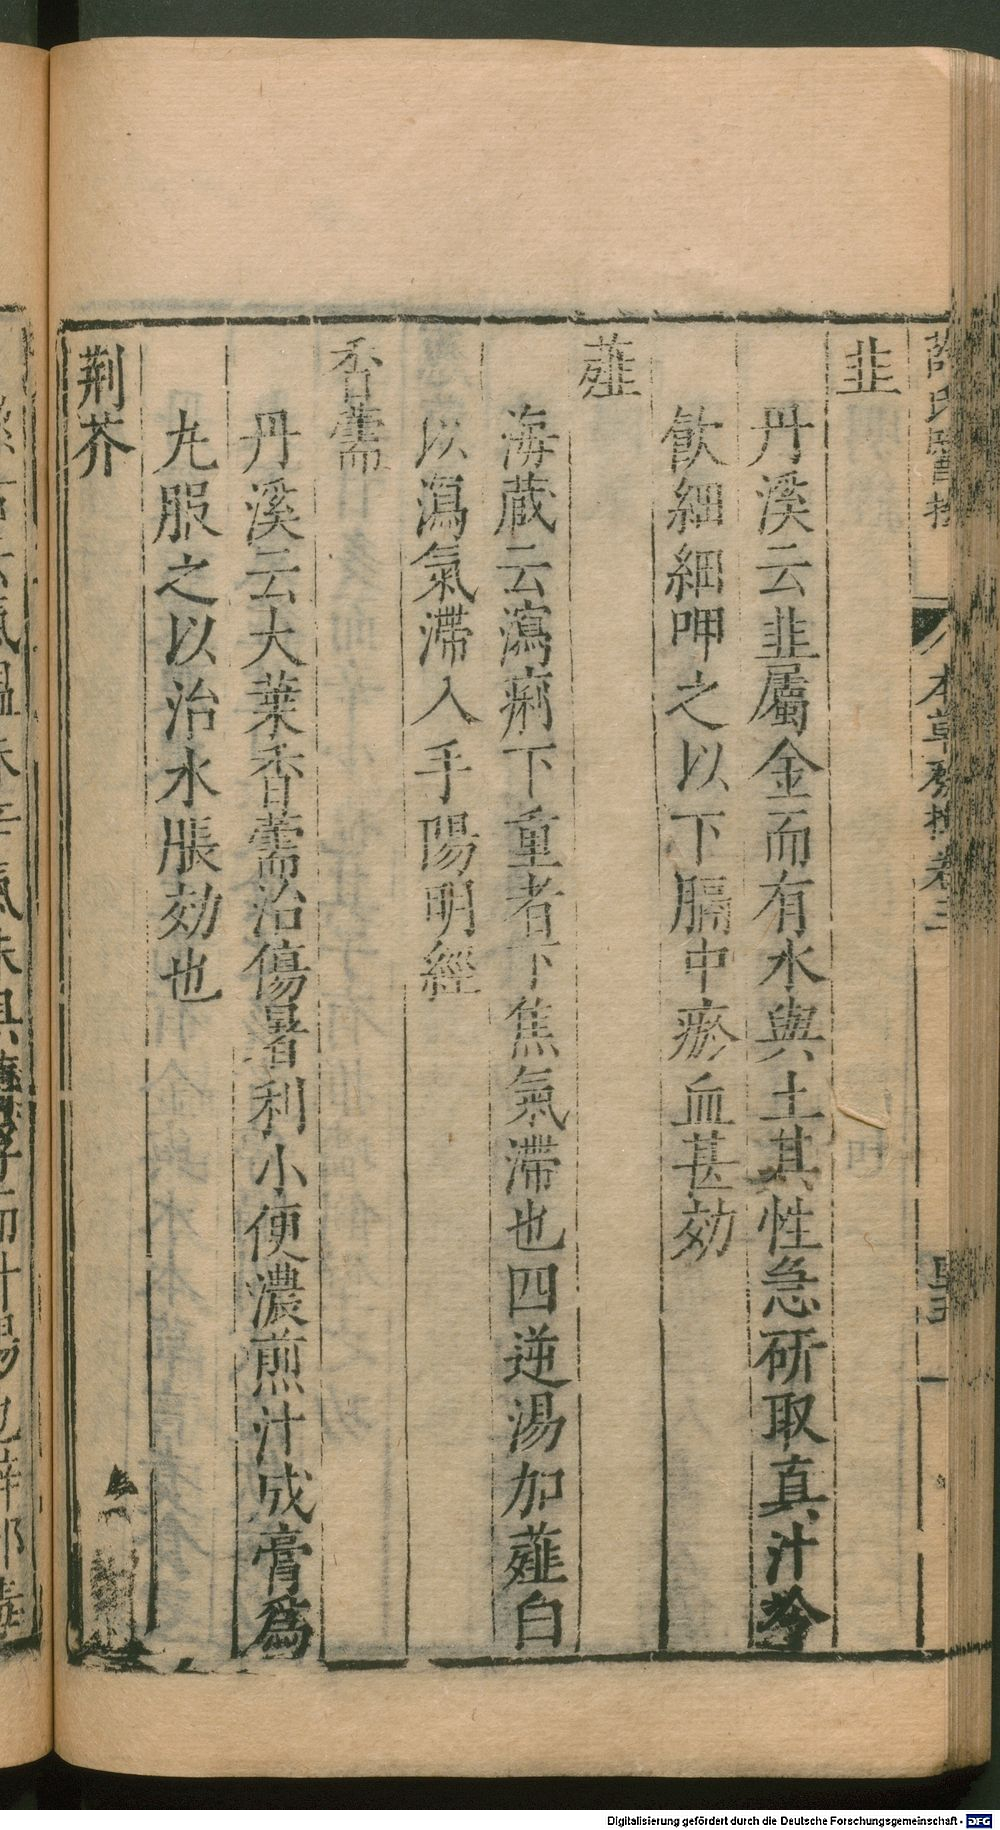 本草發揮卷三
韭
丹溪云韭屬金而有水與土其性急研取真汁冷
飲細細呷之以下膈中瘀血甚効
薤
海蔵云瀉痢下重者下焦氣滯也四逆湯加薤白
以瀉氣滯入手陽明經
香薷
丹溪云大葉香薷治傷暑利小便濃煎汁成膏爲
丸服之以治水脹効也
荆芥
Digitalisierung gefördert durch die Deutsche Forschungsgemeinschaft - DFG